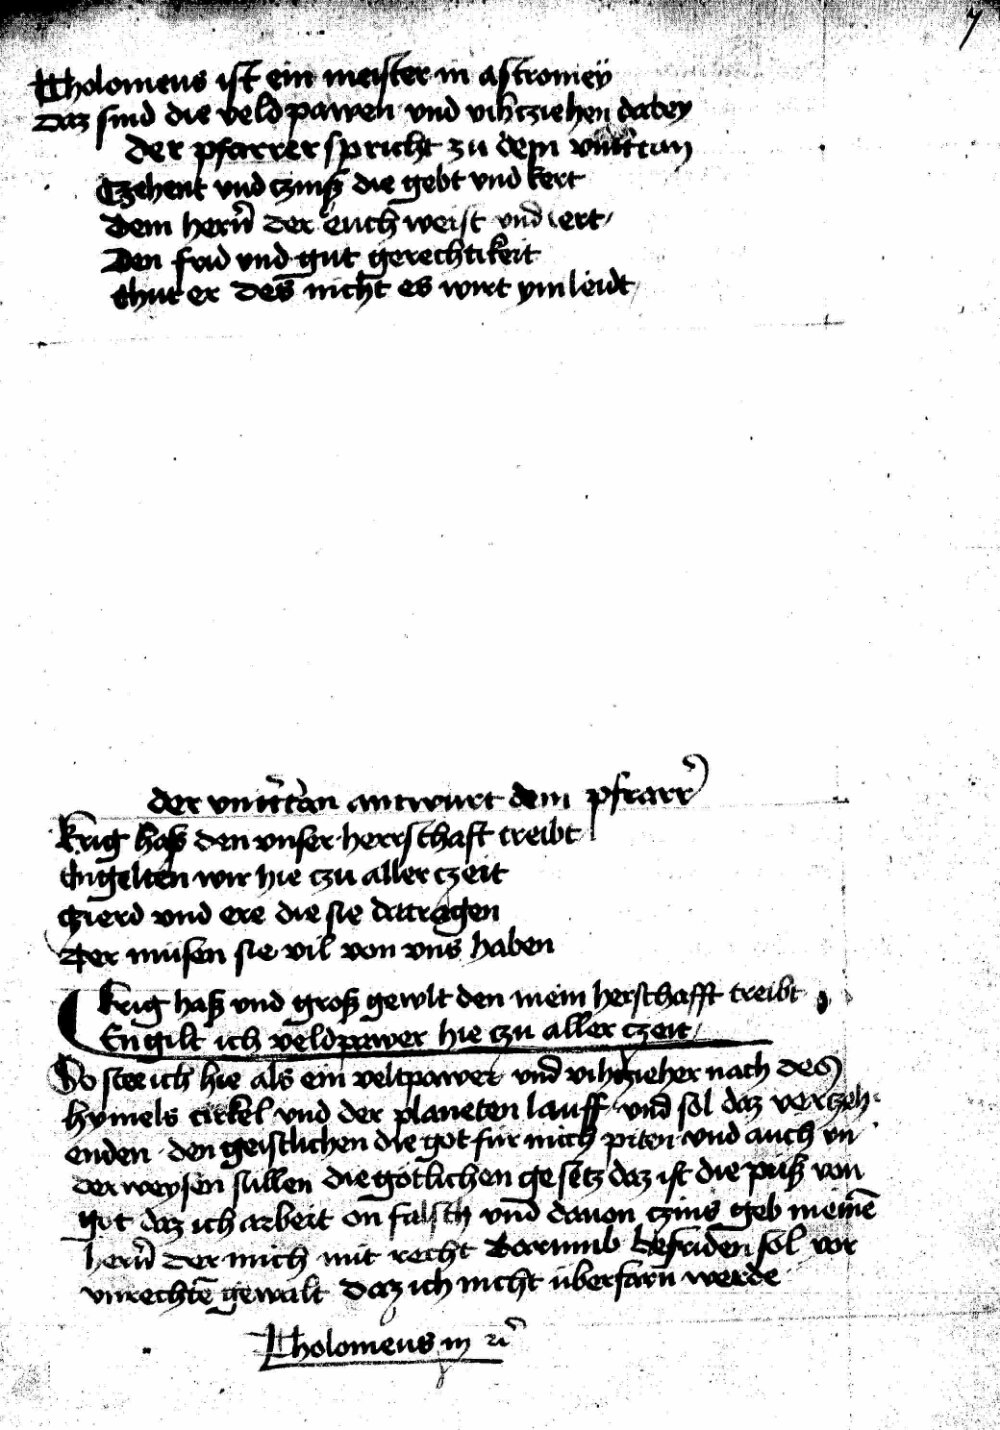 7
Ptholomeus ist ein meister in astromeÿ
Daz sind die veld pawren und vihtziehen dabey
der pfarrer spricht zu dem
Czehent vnd czinß die gebt vnd kert
Dem hern̄ der euch weist vnd lert
Den frid vnd gut gerechtikeit
thut er des nicht es wirt ym leidt
der antwurt dem pfrarr
krig haß den vnser herrschaft treibt
Engelten wir hie czu aller czeit
Czierd vnd ere die sie
Der musen sie vil von vns haben
krig haß vnd groß gewlt den mein herschafft treibt
Engilt ich veldpawer hie czu aller czeit
So stee ich hie als ein veltpawer vnd vihtzieher nach des
hymels cirkel vnd der planeten lauff vnd sol daz vertzeh
enden den geistlichen die got fur mich piten vnd auch vn
der weysen sullen die gotlichen gesetz daz ist die puß von
got daz ich arbeit on falsch vnd dauon czins geb meinē
hern̄ der mich mit recht darumb befriden sol vor
vnrechtē gewalt daz ich nicht uberfarn werde
Ptholomeus in